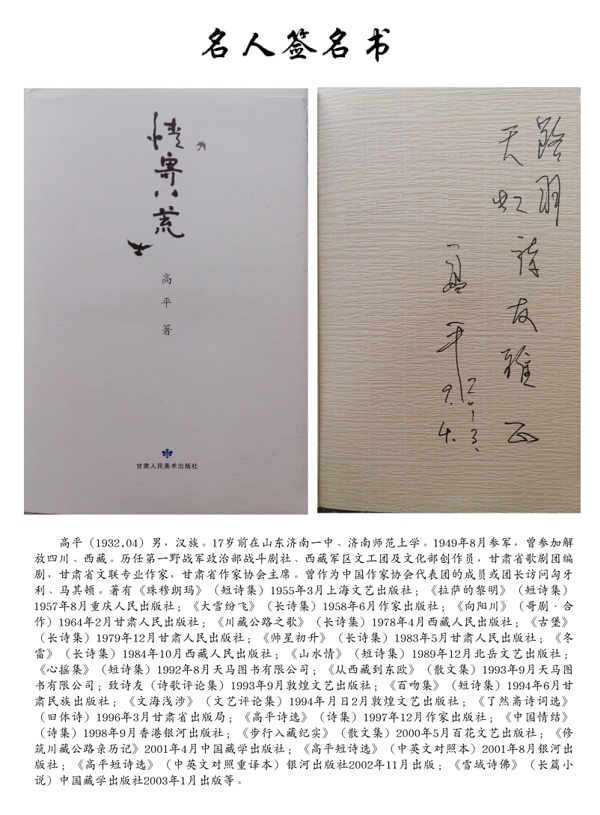 名人签名书
情寄八荒
高平著
甘肃人民美术出版社
路羽
天虹
诗友雅正
高平
2013.
9.4.
高平（1932.04）男，汉族。17岁前在山东济南一中、济南师范上学。1949年8月参军，曾参加解
放四川、西藏。历任第一野战军政治部战斗剧社、西藏军区文工团及文化部创作员，甘肃省歌剧团编
剧，甘肃省文联专业作家，甘肃省作家协会主席。曾作为中国作家协会代表团的成员或团长访问匈牙
利、马其顿。著有《珠穆朗玛》（短诗集）1955年3月上海文艺出版社；《拉萨的黎明》（短诗集）
1957年8月重庆人民出版社；《大雪纷飞》（长诗集）1958年6月作家出版社；《向阳川》（哥剧·合
作)1964年2月甘肃人民出版社；《川藏公路之歌》（长诗集）1978年4月西藏人民出版社；《古堡》
（长诗集）1979年12月甘肃人民出版社；《帅星初升》（长诗集）1983年5月甘肃人民出版社；《冬
雷》（长诗集）1984年10月西藏人民出版社；《山水情》（短诗集）1989年12月北岳文艺出版社；
《心摇集》（短诗集）1992年8月天马图书有限公司；《从西藏到东欧》（散文集）1993年9月天马图
书有限公司；致诗友（诗歌评论集）1993年9月敦煌文艺出版社；《百吻集》（短诗集）1994年6月甘
肃民族出版社；《文海浅涉》（文艺评论集）1994年月日2月敦煌文艺出版社；《了然斋诗词选》
（旧体诗）1996年3月甘肃省出版局；《高平诗选》（诗集）1997年12月作家出版社；《中国情结》
（诗集）1998年9月香港银河出版社；《步行入藏纪实》（散文集）2000年5月百花文艺出版社；《修
筑川藏公路亲历记》2001年4月中国藏学出版社；《高平短诗选》（中英文对照本）2001年8月银河出
版社；《高平短诗选》（中英文对照重译本）银河出版社2002年11月出版；《雪域诗佛》（长篇小
说）中国藏学出版社2003年1月出版等。